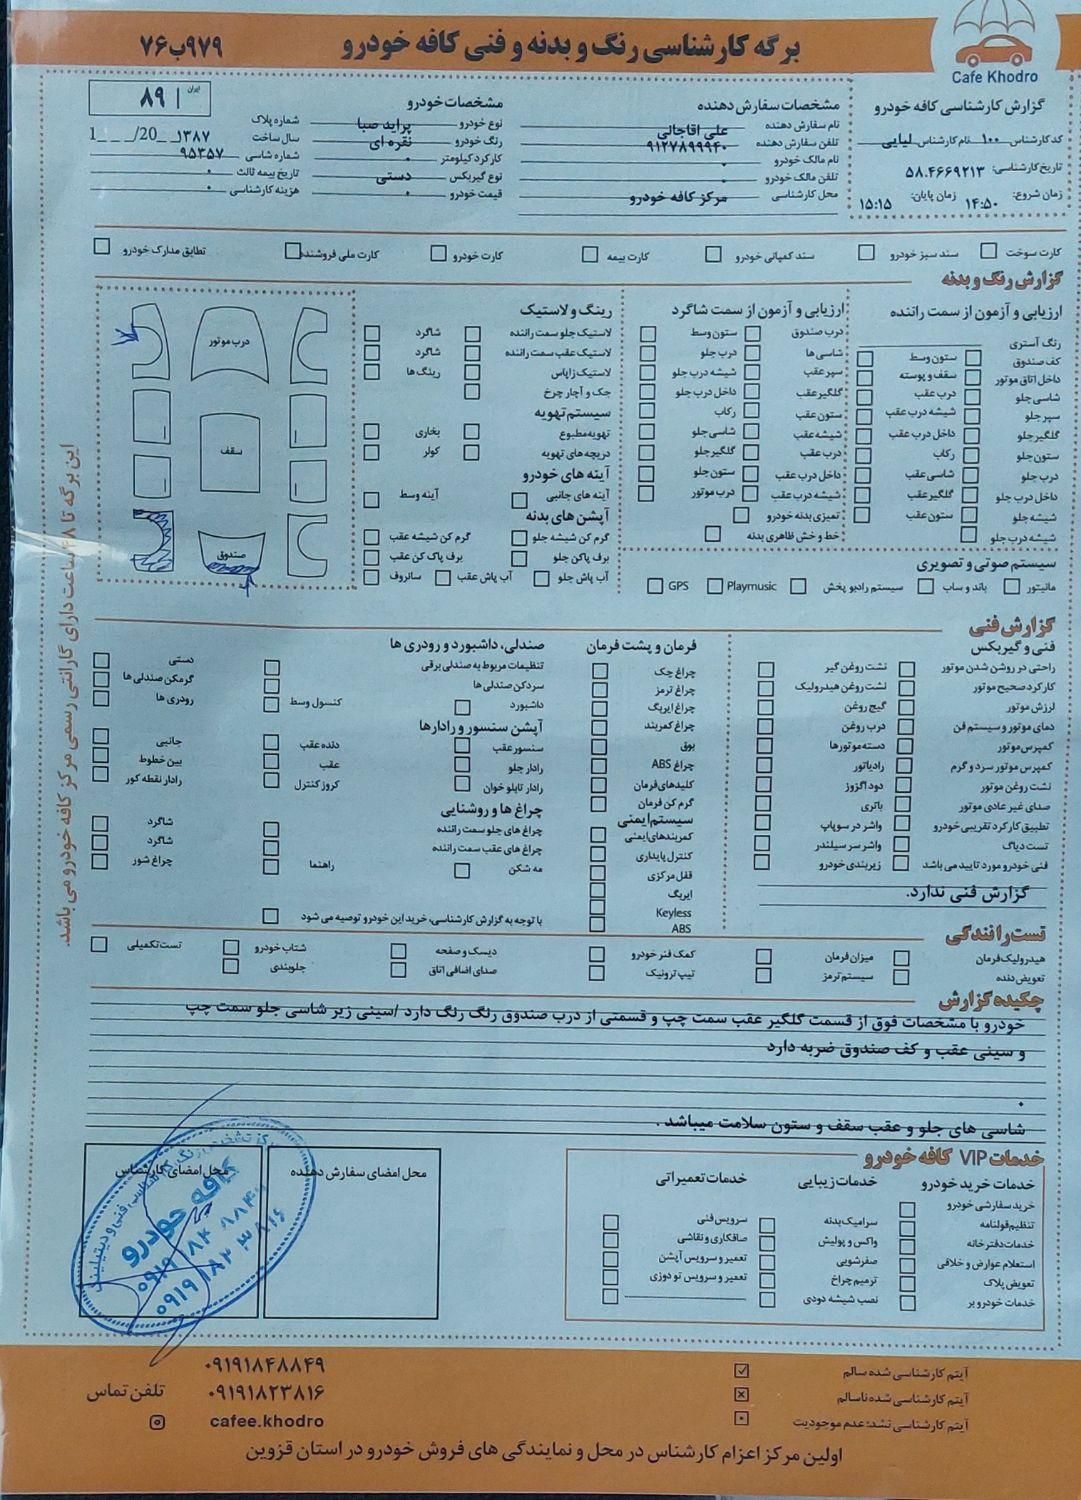 برگه کارشناسی رنگ و بدنه و فنی کافه خودرو
۹۷۹ب۷۶
Cafe Khodro
گزارش کارشناسی کافه خودرو
کد کارشناس ۱۰۰ نام کارشناس لیایی
تاریخ کارشناسی: ۵۸.۴۶۶۹۲۱۳
زمان شروع: ۱۴:۵۰ زمان پایان: ۱۵:۱۵
مشخصات سفارش دهنده
نام سفارش دهنده علی اقاجالی
تلفن سفارش دهنده ۹۱۲۷۸۹۹۹۴۰
نام مالک خودرو ۰
تلفن مالک خودرو ۰
محل کارشناسی مرکز کافه خودرو
مشخصات خودرو
نوع خودرو پراید صبا
رنگ خودرو نقره ای
کارکرد کیلومتر ۰
نوع گیربکس دستی
قیمت خودرو ۰
ایران ۸۹
شماره پلاک
سال ساخت ۱۳۸۷ /20__ /____1
شماره شاسی ۹۵۳۵۷
تاریخ بیمه ثالث ۰
هزینه کارشناسی ۰
کارت سوخت سند سبز خودرو سند کمپانی خودرو کارت بیمه کارت خودرو کارت ملی فروشنده تطابق مدارک خودرو
گزارش رنگ و بدنه
ارزیابی و آزمون از سمت راننده
رنگ آستری
کف صندوق ستون وسط
داخل اتاق موتور سقف و پوسته
شاسی جلو درب عقب
سپر جلو شیشه درب عقب
گلگیر جلو داخل درب عقب
ستون جلو رکاب
درب جلو شاسی عقب
داخل درب جلو گلگیر عقب
شیشه جلو ستون عقب
شیشه درب جلو
ارزیابی و آزمون از سمت شاگرد
درب صندوق ستون وسط
شاسی ها درب جلو
سپر عقب شیشه درب جلو
گلگیر عقب داخل درب جلو
ستون عقب رکاب
شیشه عقب شاسی جلو
درب عقب گلگیر جلو
داخل درب عقب ستون جلو
شیشه درب عقب درب موتور
تمیزی بدنه خودرو
خط و خش ظاهری بدنه
رینگ و لاستیک
لاستیک جلو سمت راننده شاگرد
لاستیک عقب سمت راننده شاگرد
لاستیک زاپاس رینگ ها
جک و آچار چرخ
سیستم تهویه
تهویه مطبوع بخاری
دریچه های تهویه کولر
آینه های خودرو
آینه های جانبی آینه وسط
آپشن های بدنه
گرم کن شیشه جلو گرم کن شیشه عقب
برف پاکن جلو برف پاک کن عقب
آب پاش جلو آب پاش عقب سانروف
درب موتور
سقف
صندوق
سیستم صوتی و تصویری
مانیتور باند و ساب سیستم رادیو پخش Playmusic GPS
گزارش فنی
فنی و گیربکس
راحتی در روشن شدن موتور نشت روغن گیر
کارکرد صحیح موتور نشت روغن هیدرولیک
لرزش موتور گیج روغن
دمای موتور و سیستم فن درب روغن
کمپرس موتور دسته موتورها
کمپرس موتور سرد و گرم رادیاتور
نشت روغن موتور دود اگزوز
صدای غیر عادی موتور باتری
تطبیق کارکرد تقریبی خودرو واشر در سوپاپ
تست دیاگ واشر سر سیلندر
فنی خودرو مورد تایید می باشد زیربندی خودرو
گزارش فنی ندارد.
فرمان و پشت فرمان
چراغ چک
چراغ ترمز
چراغ ایربگ
چراغ کمربند
بوق
چراغ ABS
کلیدهای فرمان
گرم کن فرمان
سیستم ایمنی
کمربندهای ایمنی
کنترل پایداری
قفل مرکزی
ایربگ
Keyless
ABS
صندلی، داشبورد و رودری ها
تنظیمات مربوط به صندلی برقی دستی
سردکن صندلی ها گرمکن صندلی ها
داشبورد کنسول وسط رودری ها
آپشن سنسور و رادارها
سنسور عقب دنده عقب جانبی
رادار جلو عقب بین خطوط
رادار تابلو خوان کروز کنترل رادار نقطه کور
چراغ ها و روشنایی
چراغ های جلو سمت راننده شاگرد
چراغ های عقب سمت راننده شاگرد
مه شکن راهنما چراغ شور
با توجه به گزارش کارشناسی، خرید این خودرو توصیه می شود
تست رانندگی
هیدرولیک فرمان میزان فرمان کمک فنر خودرو دیسک و صفحه شتاب خودرو تست تکمیلی
تعویض دنده سیستم ترمز تیپ ترونیک صدای اضافی اتاق جلوبندی
چکیده گزارش
خودرو با مشخصات فوق از قسمت گلگیر عقب سمت چپ و قسمتی از درب صندوق رنگ رنگ دارد /سینی زیر شاسی جلو سمت چپ
و سینی عقب و کف صندوق ضربه دارد
۰
شاسی های جلو و عقب سقف و ستون سلامت میباشد .
خدمات VIP کافه خودرو
خدمات خرید خودرو خدمات زیبایی خدمات تعمیراتی
خرید سفارشی خودرو سرامیک بدنه سرویس فنی
تنظیم قولنامه واکس و پولیش صافکاری و نقاشی
خدمات دفترخانه صفرشویی تعمیر و سرویس آپشن
استعلام عوارض و خلافی ترمیم چراغ تعمیر و سرویس تو دوزی
تعویض پلاک نصب شیشه دودی
خدمات خودرو بر
محل امضای سفارش دهنده
محل امضای کارشناس
کافه خودرو
۰۹۱۹۱۸۴۸۸۴۹
۰۹۱۹۱۸۲۳۸۱۶
این برگه تا ۴۸ ساعت دارای گارانتی رسمی مرکز کافه خودرو می باشد.
آیتم کارشناسی شده سالم
آیتم کارشناسی شده ناسالم
آیتم کارشناسی نشد: عدم موجودیت
۰۹۱۹۱۸۴۸۸۴۹
تلفن تماس ۰۹۱۹۱۸۲۳۸۱۶
cafee.khodro
اولین مرکز اعزام کارشناس در محل و نمایندگی های فروش خودرو در استان قزوین